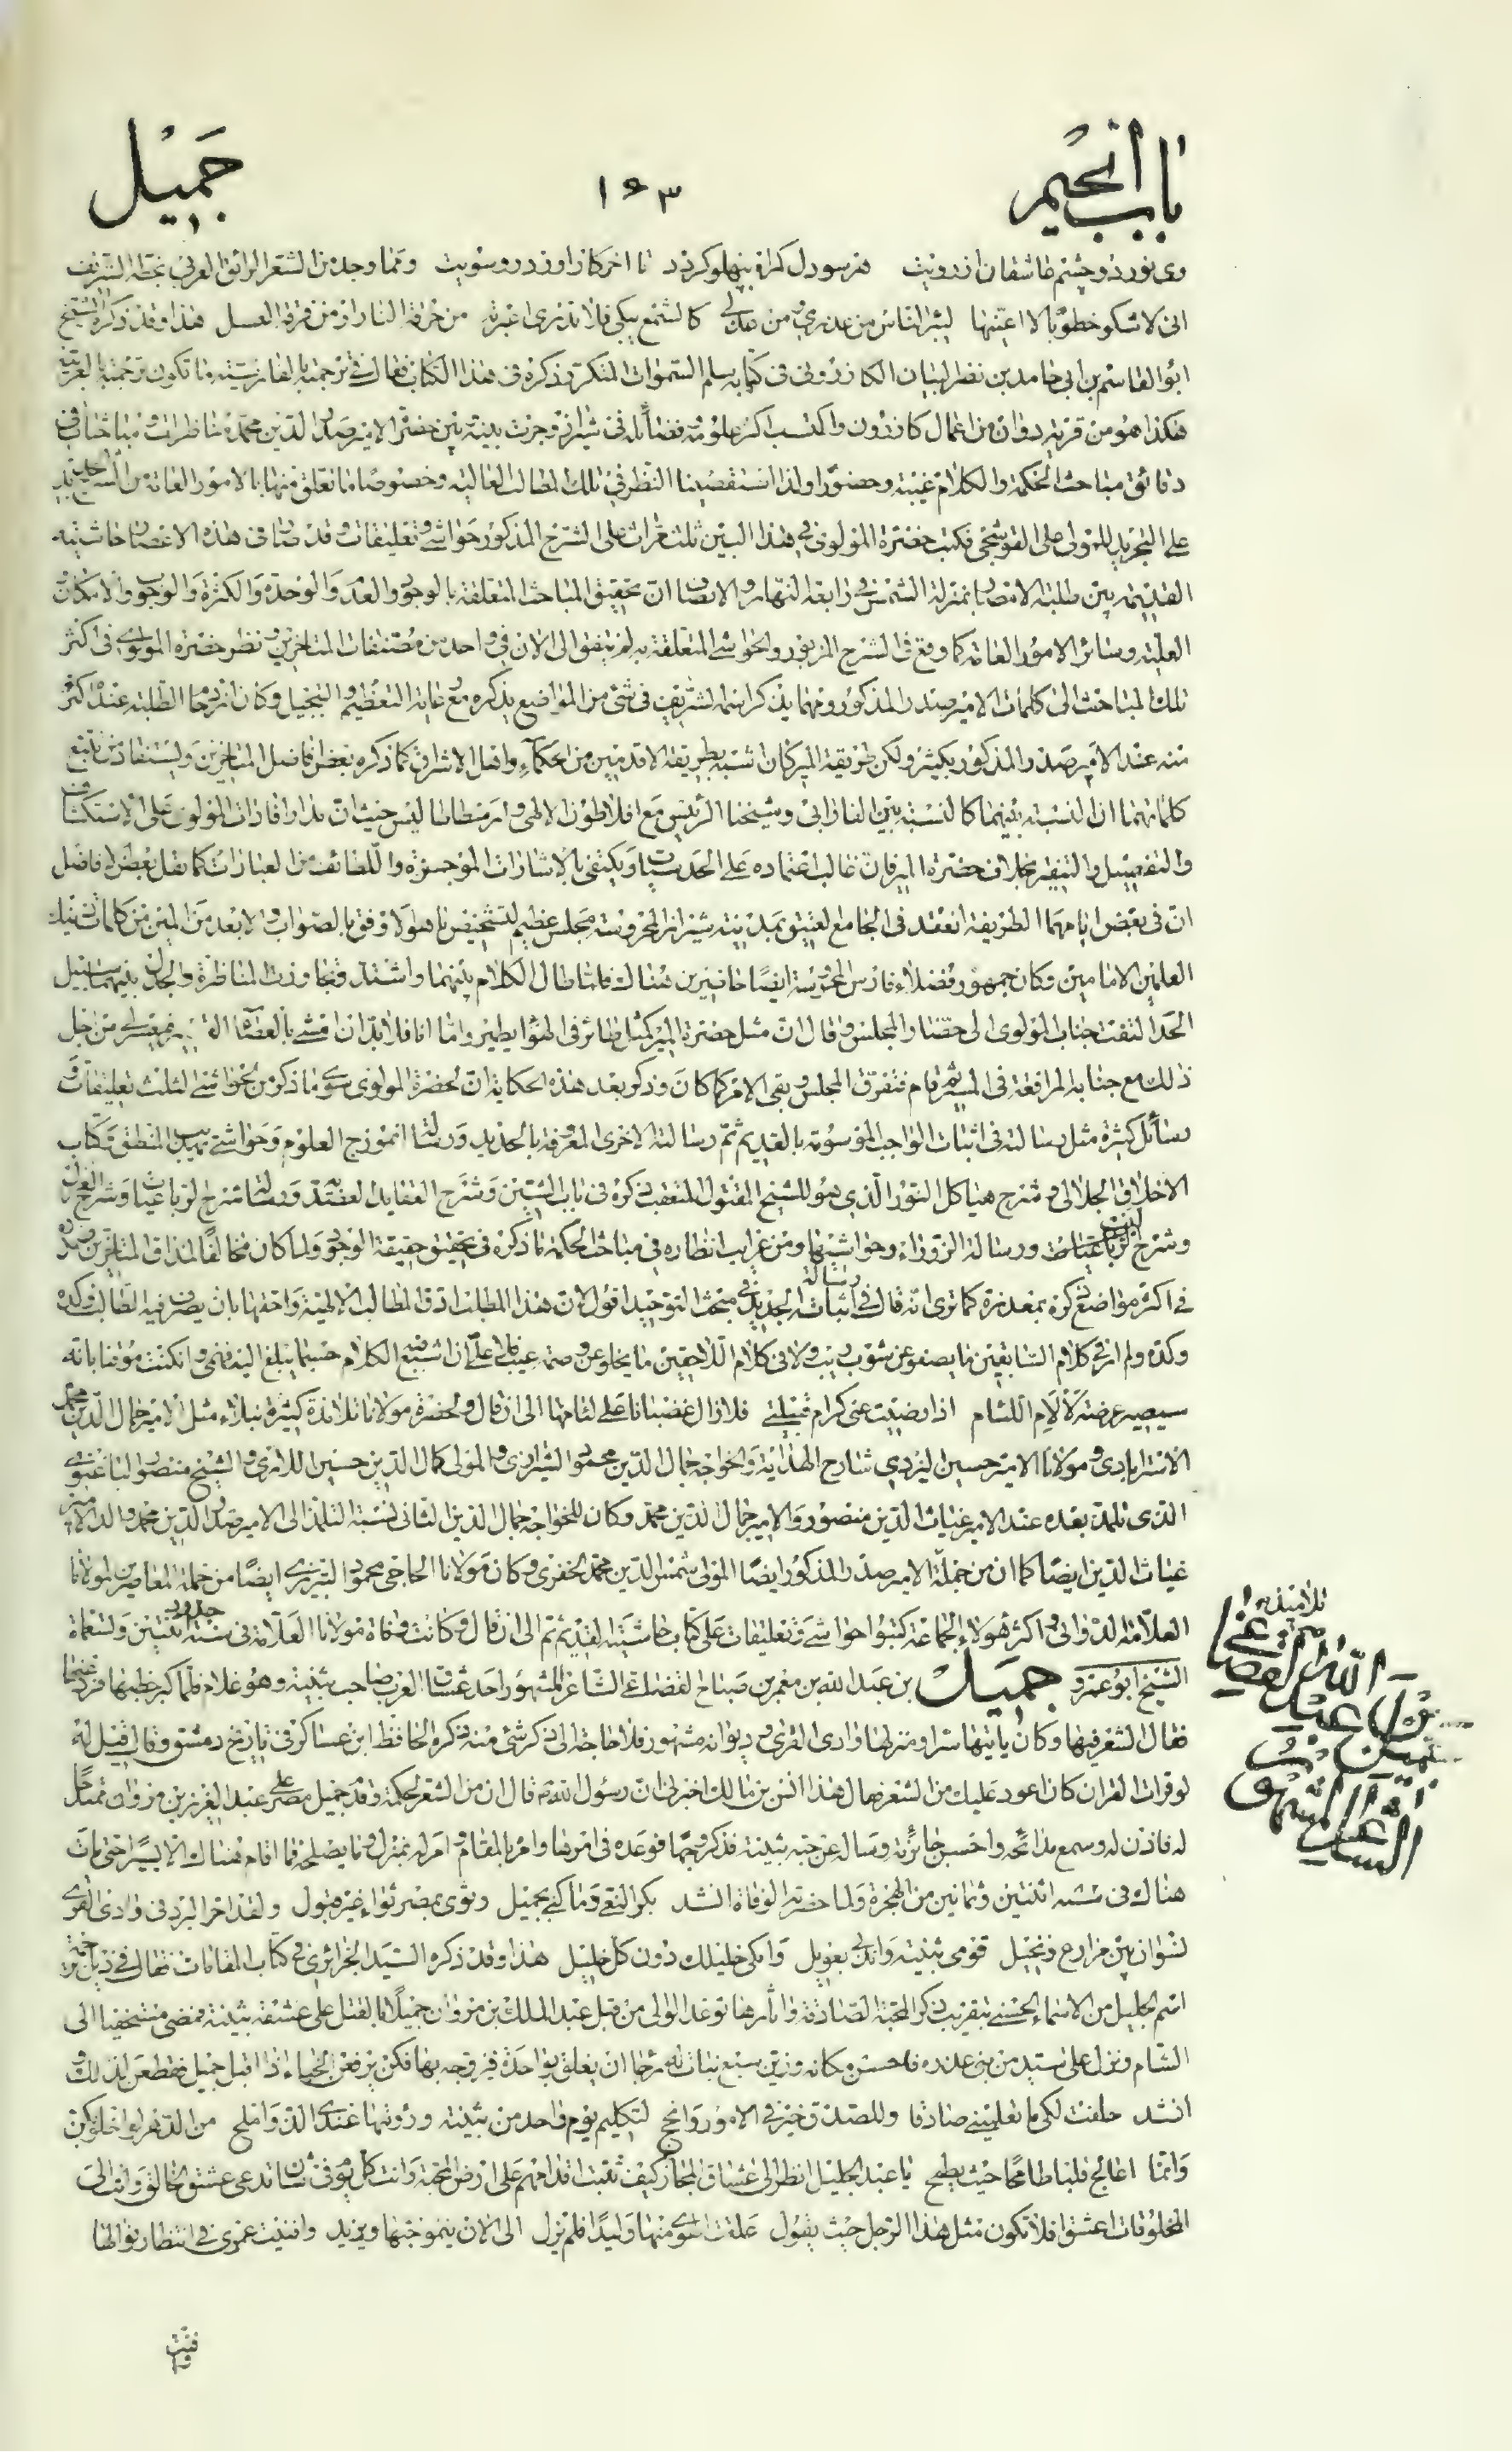 باب الجیم
۱۶۳
جَمیل
وی نور دو چشم عاشقان از رویت هر سو دل کمراه بپهلو کردد تا اخر کار او زدر و سویت و مما وجد من الشعر الرائق العربی بخطه الشریف
انی لاشکو خطوبا لا اعینها لیبرء الناس من عذری و من عذلی کالشمع یبکی فلا تدری اعبرته من حرقة النار او من فرقة العسل هذا و قد ذکره الشیخ
ابو القاسم بن ابی حامد بن نصر البیان الکازرونی فی کتابه سلم السموات المتکرر ذکره فی هذا الکتاب فقال فی ترجمته بالفارسیته ما تکون ترجمته بالعربیه
هکذا هو من قریة دوان من اعمال کازرون و اکتسب اکثر علومه و فضائله فی شیراز و جرت بینه و بین حضرة الامیر صدر الدین محمد مناظرات و مباحثات فی
دقائق مباحث الحکمة و الکلام غیبة و حضورا و لذا استقصینا النظر فی تلک المطالب العالیه و خصوصا ما تعلق منها بالامور العامة من الشرح الجدید
علی التجرید للمولی علی القوشجی فکتب حضرة المولوی فی هذا البین ثلث مرات علی الشرح المذکور حواشی و تعلیقات و قد صار فی هذه الاعصار حاشیته
القدیمه بین طلبة الامصار بمنزلة الشمس فی رابعة النهار و الانصاف ان تحقیق المباحث المتعلقة بالوجود و العدم و الوحدة و الکثرة و الوجوب و الامکان
العلیه و سائر الامور العامه کما وقع فی الشرح المزبور و الحواشی المتعلقة به لم یتفق الی الان فی واحد من مصنفات المتاخرین و نظر حضرة المولوی فی اکثر
تلک المباحث الی کلمات الامیر صدر المذکور و مهما یذکر اسمه الشریف فی شئ من المواضع یذکره مع غایة التعظیم و التبجیل و کان ازدحام الطلبة عنده اکثر
منه عند الامیر صدر المذکور بکثیر ولکن طریقة المیر کان اشبه بطریقة الاقدمین من الحکماء و اهل الاشراق کما ذکره بعض افاضل المتاخرین و یستفاد من تتبع
کلماتهما ان النسبة بینهما کالنسبة بین الفارابی و شیخنا الرئیس مع افلاطون الالهی و ارسطاطالیس حیث ان مدار افادات المولوی علی الاستکشاف
و التفصیل و التنقیر بخلاف حضرة المیر فان غالب اعتماده علی الحدسیات و یکتفی بالاشارات الموجزة و اللطائف من العبارات کما نقل بعض الافاضل
ان فی بعض ایامهما الطریفة انعقد فی الجامع العتیق بمدینة شیراز المحروسة مجلس عظیم لتشخیص ما هو الاوفق بالصواب و الابعد من المین من کلمات ذینک
العلمین الامامین و کان جمهور فضلاء فارس المحروسة ایضا حاضرین هناک فلما طال الکلام بینهما و اشتد و تجاوزت المناظرة و الجدل بینهما سبیل
الحد التفت جناب المولوی الی حضار المجلس و قال ان مثل حضرة المیر کمثل طائر فی الهواء یطیر و اما انا فلا بد ان امشی بالعصا من اجل
ذلک مع جنابه المرافقة فی المسیر ثم قام فتفرق المجلس و بقی الامر کما کان و ذکر بعد هذه الحکایة ان لحضرة المولوی سوی ما ذکر من الحواشی الثلث تعلیقات و
رسائل کثیرة مثل رسالته فی اثبات الواجب الموسومة بالقدیم ثم رسالته الاخری المعروفة بالجدید و رسالة انموزج العلوم و حواشی تهذیب المنطق و کتاب
الاخلاق الجلالی و شرح هیاکل النور الذی هو للشیخ المقتول المتعقب ذکره فی باب الشین و شرح العقاید العضدیه و رسالة شرح الرباعیات و شرح الغزل
و شرح البیت و رسالة الزوراء و حواشیها و من غرایب انظاره فی مباحث الحکمة ما ذکره فی تحقیق حقیقة الوجود و لما کان مخالفا لمذاق المتاخرین صدره
فی اکثر مواضع ذکره بمعذرة کما تری انه قال فی رسالة اثباته الجدید فی مبحث التوحید اقول لان هذا المطلب ادق المطالب الالهیة و احقها بان یصرف فیه الطالب وکده
وکده و لم ار فی کلام السابقین ما یصفو عن شوب ریب و لا فی کلام اللاحقین ما یخلو عن وصمة عیب فلا علی ان اشبع فیه الکلام حسبما یبلغ الیه فهمی و ان کنت موقنا بانه
سیصیر عرضة لملام اللئام اذا رضیت عنی کرام قبیلتی فلا زال غضبانا علی لئامها الی ان قال و لحضرة مولانا تلامذة کثیرة نبلاء مثل الامیر جمال الدین محمد
الاسترابادی و مولانا الامیر حسین الیزدی شارح الهدایة و الخواجه جمال الدین محمود الشیرازی و المولی کمال الدین حسین اللاری و الشیخ منصور الباغنوی
الذی تلمذ بعده عند الامیر غیاث الدین منصور و الامیر جمال الدین محمد و کان للخواجه جمال الدین الثانی نسبة التلمذ الی الامیر صدر الدین محمد والد الامیر
غیاث الدین ایضا کما ان من جملة تلامذة الامیر صدر المذکور ایضا المولی شمس الدین محمد الخفری و کان مولانا الحاجی محمود التبریزی ایضا من جملة المعاصرین لمولانا
العلامة الدوانی و اکثر هولاء الجماعة کتبوا حواشی و تعلیقات علی کتاب حاشیته القدیم ثم الی ان قال و کانت وفاة مولانا العلامة فی حدود سنة اثنتین و تسعماة
الشیخ ابو عمرو جمیل بن عبد الله بن معمر بن صباح القضاعی الشاعر المشهور احد عشاق العرب صاحب بثینة و هو غلام فلما کبر خطبها فرد عنها
فقال الشعر فیها و کان یاتیها سرا و منزلها وادی القری و دیوانه مشهور فلا حاجة الی ذکر شئ منه ذکره الحافظ ابن عساکر فی تاریخ دمشق و قال قیل له
لو قرات القران کان اعود علیک من الشعر فقال هذا انس بن مالک اخبرنی ان رسول الله ص قال ان من الشعر لحکمة و قدم جمیل مصر علی عبد العزیز بن مروان ممتدحا
له فاذن له و سمع مدائحه و احسن جائزته و ساله عن حبه بثینة فذکر وجدا فوعده فی امرها و امره بالمقام و امر له بمنزل و ما یصلحه فما اقام هناک الا یسیرا حتی مات
هناک فی سنه اثنتین و ثمانین من الهجرة و لما حضرته الوفاة انشد بکر النعی و ما کنی بجمیل و ثوی بمصر ثواء غیر قفول و لقد اجر البرد فی وادی القری
نشوان بین مزارع و نخیل قومی بثینة و اندبی بعویل و ابکی خلیلک دون کل خلیل هذا و قد ذکره السید الجزائری فی کتاب المقامات فقال فی ذیل ترجمة
اسم الجلیل من الاسماء الحسنی بتقریب ذکر المحبة الصادقة و اثارها توعد الوالی من قبل عبد الملک بن مروان جمیلا بالقتل علی عشقه بثینة فمضی مستخفیا الی
الشام و نزل علی سید من بنی عذره فاحسن مکانه و زین سبع بنات له رجاء ان یعلق بواحدة فیزوجه بها فکن یرفعن الخباء اذا اقبل جمیل ففطن لذلک و
انشد حلفت لکی ما تعلمینی صادقا و للصدق خیر فی الامور و انجح لتکلیم یوم واحد من بثینة و رؤیتها عندی الذ و املح من الدهر لو اخلو بکن
و انما اعالج قلبا طامحا حیث یطمح یا عبد الجلیل انظر الی عشاق المجاز کیف تثبت اقدامهم علی ارض المحبة و انت کل یوم فی شان تدعی عشق الخالق و انت الی
المخلوقات اعشق افلا تکون مثل هذا الرجل حیث یقول علقت الهوی منها ولیدا فلم یزل الی الان ینمو حبها و یزید و افنیت عمری فی انتظار نوالها
تلامذة
بن عبد الله القضاعی
الشاعر المشهور